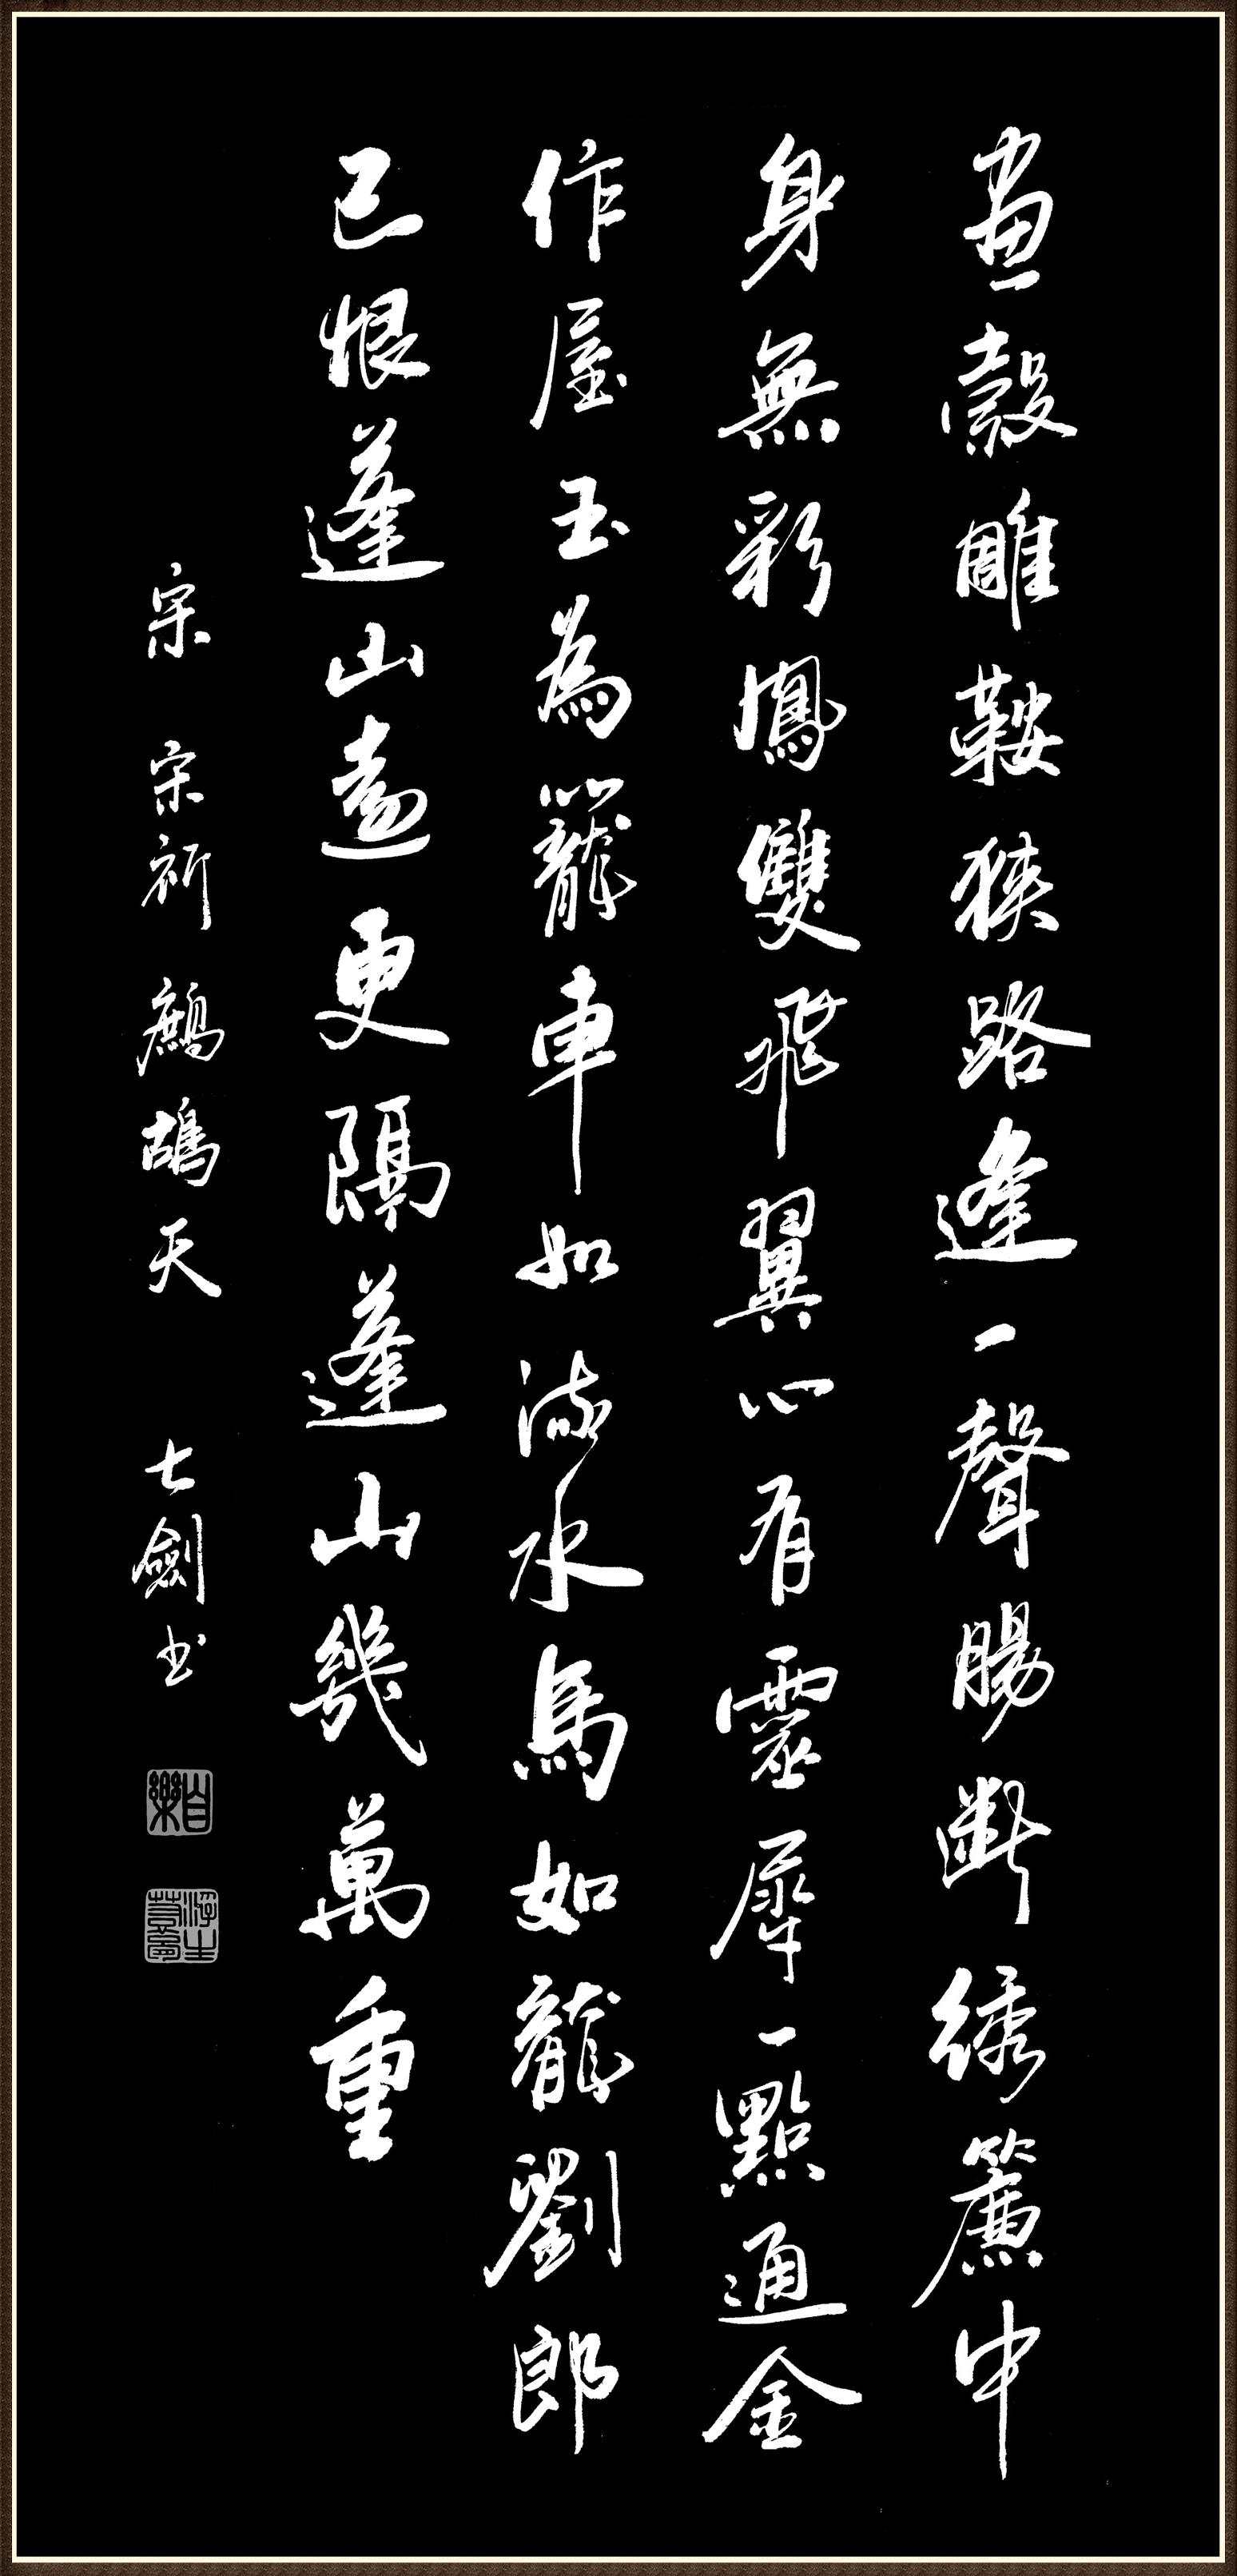 畫轂雕鞍狹路逢一聲腸斷綉簾中
身無彩鳳雙飛翼心有靈犀一點通金
作屋玉為籠車如流水馬如龍劉郎
已恨蓬山遠更隔蓬山幾萬重
宋 宋祁 鷓鴣天 七劍书
自樂
浮生若夢